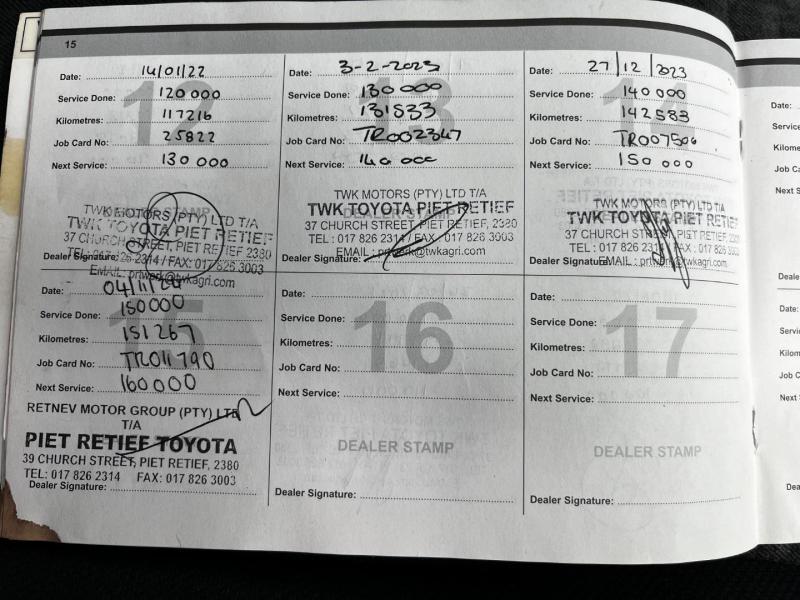 15
12
Date: 14/01/22
Service Done: 120 000
Kilometres: 117216
Job Card No: 25822
Next Service: 130 000
TWK MOTORS (PTY) LTD T/A
TWK TOYOTA PIET RETIEF
37 CHURCH STREET, PIET RETIEF 2380
TEL: 017 826 2314 / FAX: 017 826 3003
Dealer Signature:
EMAIL : prtwerk@twkagri.com
13
Date: 3-2-2023
Service Done: 130 000
Kilometres: 131533
Job Card No: TR002347
Next Service: 140 000
TWK MOTORS (PTY) LTD T/A
DEALER STAMP
TWK TOYOTA PIET RETIEF
37 CHURCH STREET, PIET RETIEF, 2380
TEL : 017 826 2314 / FAX : 017 826 3003
Dealer Signature: EMAIL : prtwerk@twkagri.com
14
Date: 27/12/2023
Service Done: 140 000
Kilometres: 142583
Job Card No: TR007506
Next Service: 150 000
TWK MOTORS (PTY) LTD T/A
TWK TOYOTA PIET RETIEF
37 CHURCH STREET, PIET RETIEF, 2380
TEL : 017 826 2314 / FAX : 017 826 3003
Dealer Signature: EMAIL : prtwerk@twkagri.com
15
Date: 04/11/24
Service Done: 150000
Kilometres: 151267
Job Card No: TR011790
Next Service: 160000
RETNEV MOTOR GROUP (PTY) LTD
T/A
PIET RETIEF TOYOTA
39 CHURCH STREET, PIET RETIEF, 2380
TEL: 017 826 2314 FAX: 017 826 3003
Dealer Signature:
16
Date:
Service Done:
Kilometres:
Job Card No:
Next Service:
DEALER STAMP
Dealer Signature:
17
Date:
Service Done:
Kilometres:
Job Card No:
Next Service:
DEALER STAMP
Dealer Signature:
Date:
Service
Kilome
Job Ca
Next S
Deale
Date:
Servic
Kilom
Job C
Next
Dea